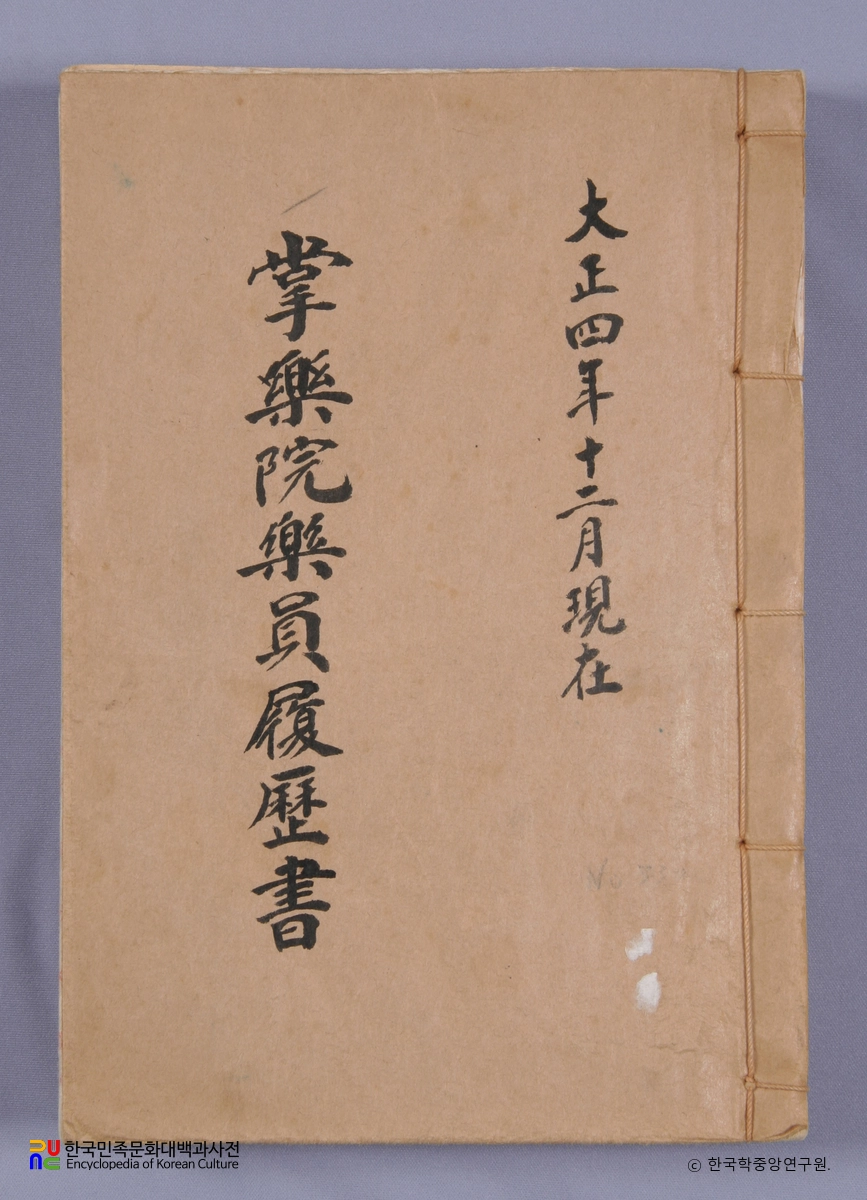 大正四年十二月現在
掌樂院樂員履歷書
한국민족문화대백과사전
Encyclopedia of Korean Culture
ⓒ 한국학중앙연구원.